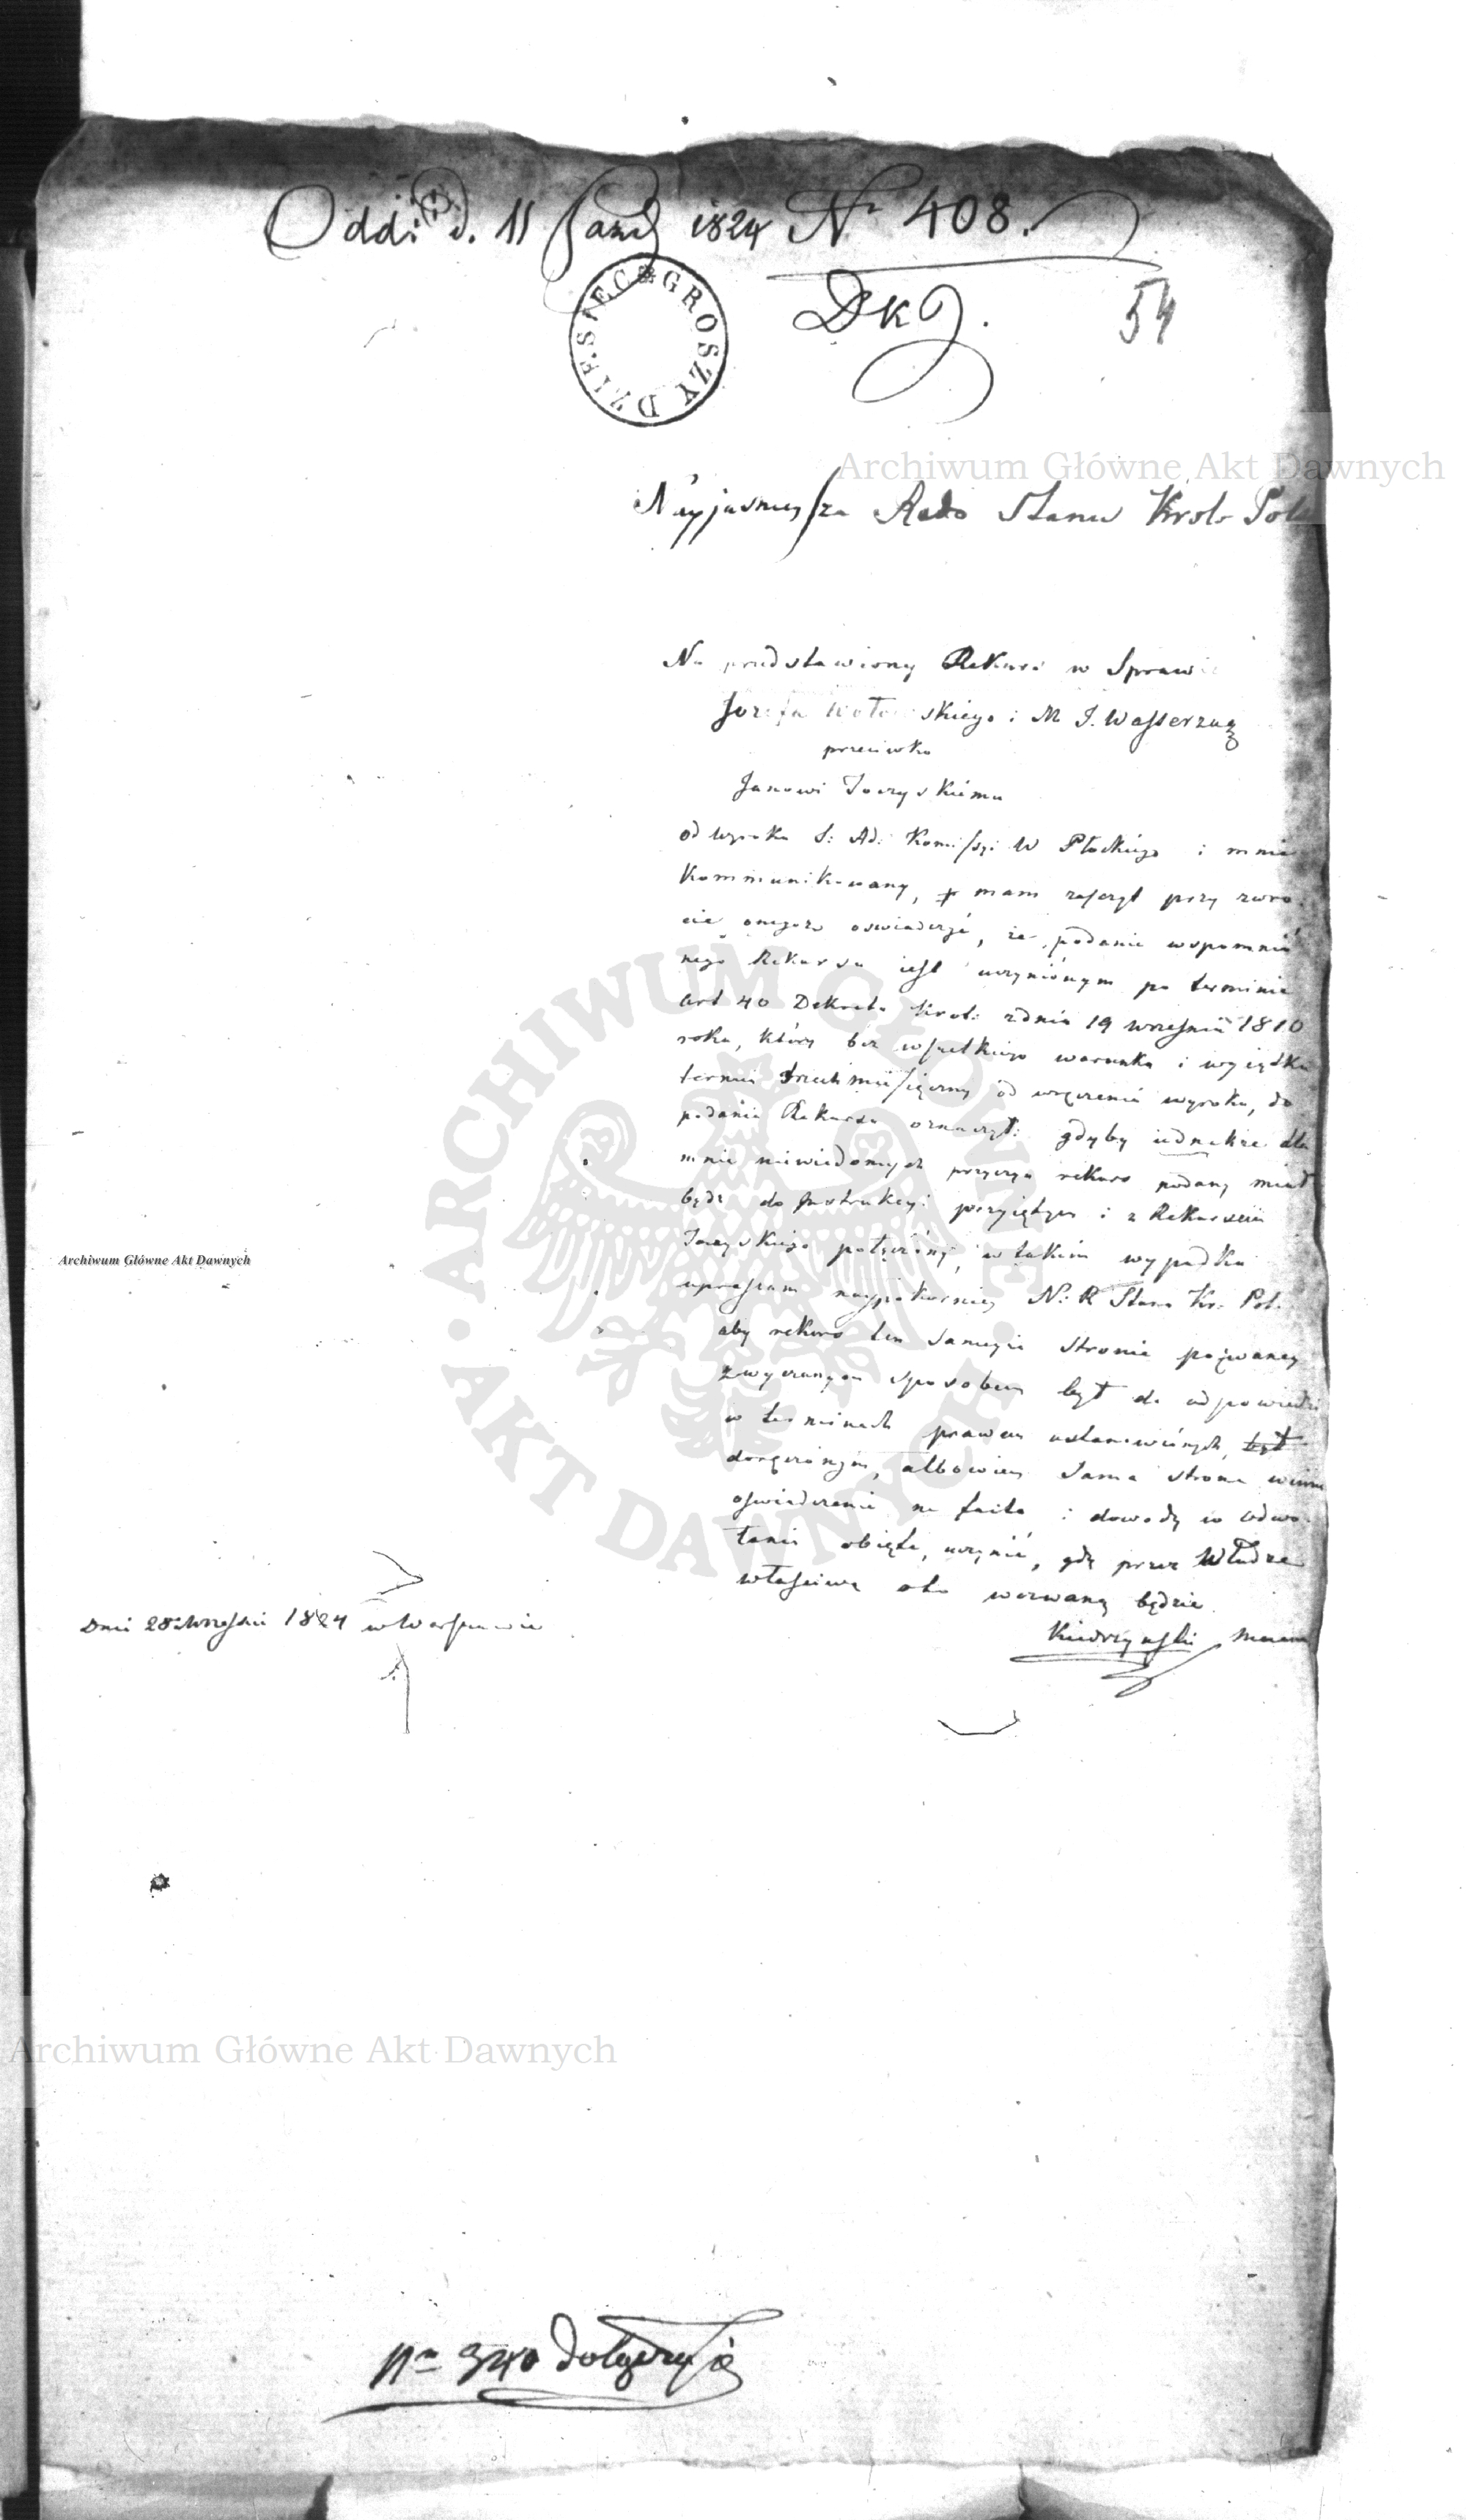 Odd: d. 11 1824 Nr 408.
DZIESIĘĆ GROSZY
DKJ.
54
Archiwum Główne Akt Dawnych
Nayjasnieysza Rado Stanu Krols Pols
Na przedstawiony Rekurs w Sprawie
Jozefa skiego i M J. Wasserzug
przeciwko
Janowi
od wyroku S: Ad: Kommissyi W Płockiego i mnie
Kommunikowany, mam zaszczyt przy zwro
cie onegoż oswiadczyć, że podanie wspomnio
nego Rekursu iest uczynionym po terminie
art 40 Dekretu Krol: z dnia 19 Wrzesnia 1810
roku, który bez wszelkiego warunku i wyiątku
termin trzech miesięczny od wręczenia wyroku, do
podania Rekursu oznaczył: gdyby iednakże dla
mnie niewiadomych przyczyn rekurs podany miał
będz do Instrukcyi przyiętym i z Rekursem
połączony, w takim wypadku
upraszam naypokorniey N: R Stanu Kr: Pol.
aby rekurs ten Samejże stronie pozwaney
zwyczaynym sposobem był do odpowiedzi
w terminach prawem ustanowionych, był
doręczonym, albowiem Sama strona winna
oswiadczenie na facta i dowody w odwo
łaniu obięte, uczynić, gdy przez Władze
właściwą oto wezwaną będzie
Dnia 28 Wrzesnia 1824 w Warszawie
Archiwum Główne Akt Dawnych
ARCHIWUM GŁÓWNE • AKT DAWNYCH •
Archiwum Główne Akt Dawnych
Nr 340 dołączyć